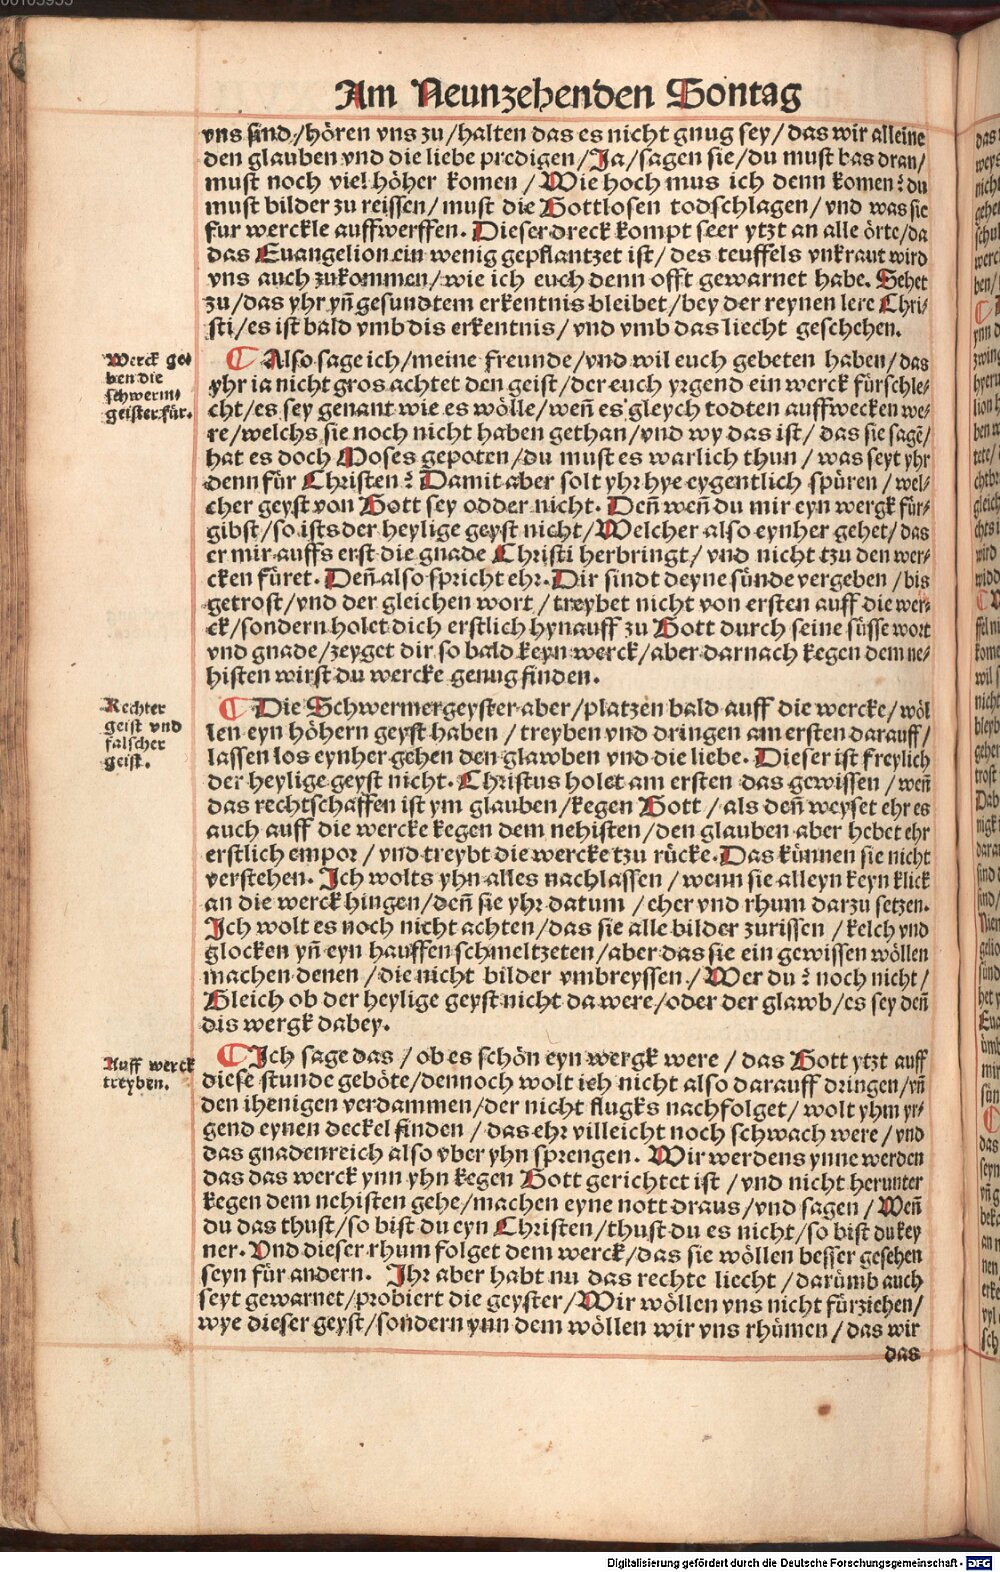 Am Neunzehenden Sontag
vns sind / hören vns zu / halten das es nicht gnug sey / das wir alleine
den glauben vnd die liebe predigen / Ja / sagen sie / du must bas dran /
must noch viel höher komen / Wie hoch mus ich denn komen? du
must bilder zu reissen / must die Gottlosen todschlagen / vnd was sie
fur werckle auffwerffen. Dieser dreck kompt seer ytzt an alle örte / da
das Euangelion ein wenig gepflantzet ist / des teuffels vnkraut wird
vns auch zukommen / wie ich euch denn offt gewarnet habe. Sehet
zu / das yhr yñ gesundtem erkentnis bleibet / bey der reynen lere Chri-
sti / es ist bald vmb dis erkentnis / vnd vmb das liecht geschehen.
Werck ge-
ben die
schwerm-
geister für.
Also sage ich / meine freunde / vnd wil euch gebeten haben / das
yhr ia nicht gros achtet den geist / der euch yrgend ein werck fürschle-
cht / es sey genant wie es wölle / weñ es gleych todten auffwecken we-
re / welchs sie noch nicht haben gethan / vnd wy das ist / das sie sagẽ /
hat es doch Moses gepoten / du must es warlich thun / was seyt yhr
denn für Christen? Damit aber solt yhr hye eygentlich spüren / wel-
cher geyst von Gott sey odder nicht. Deñ weñ du mir eyn wergk für-
gibst / so ists der heylige geyst nicht / Welcher also eynher gehet / das
er mir auffs erst die gnade Christi herbringt / vnd nicht tzu den wer-
cken füret. Deñ also spricht ehr. Dir sindt deyne sünde vergeben / bis
getrost / vnd der gleichen wort / treybet nicht von ersten auff die wer-
ck / sondern holet dich erstlich hynauff zu Gott durch seine süsse wort
vnd gnade / zeyget dir so bald keyn werck / aber darnach kegen dem ne-
histen wirst du wercke genug finden.
Rechter
geist vnd
falscher
geist.
Die Schwermergeyster aber / platzen bald auff die wercke / wöl
len eyn höhern geyst haben / treyben vnd dringen am ersten darauff /
lassen los eynher gehen den glawben vnd die liebe. Dieser ist freylich
der heylige geyst nicht. Christus holet am ersten das gewissen / weñ
das rechtschaffen ist ym glauben / kegen Gott / als deñ weyset ehr es
auch auff die wercke kegen dem nehisten / den glauben aber hebet ehr
erstlich empor / vnd treybt die wercke tzu rücke. Das künnen sie nicht
verstehen. Ich wolts yhn alles nachlassen / wenn sie alleyn keyn klick
an die werck hingen / deñ sie yhr datum / eher vnd rhum darzu setzen.
Ich wolt es noch nicht achten / das sie alle bilder zurissen / kelch vnd
glocken yñ eyn hauffen schmeltzeten / aber das sie ein gewissen wöllen
machen denen / die nicht bilder vmbreyssen / Wer du? noch nicht /
Gleich ob der heylige geyst nicht da were / oder der glawb / es sey deñ
dis wergk dabey.
Auff werck
treyben.
Ich sage das / ob es schön eyn wergk were / das Gott ytzt auff
diese stunde geböte / dennoch wolt ich nicht also darauff dringen / vñ
den ihenigen verdammen / der nicht flugks nachfolget / wolt yhm yr-
gend eynen deckel finden / das ehr villeicht noch schwach were / vnd
das gnadenreich also vber yhn sprengen. Wir werdens ynne werden
das das werck ynn yhn kegen Gott gerichtet ist / vnd nicht herunter
kegen dem nehisten gehe / machen eyne nott draus / vnd sagen / Weñ
du das thust / so bist du eyn Christen / thust du es nicht / so bist du key
ner. Vnd dieser rhum folget dem werck / das sie wöllen besser gesehen
seyn für andern. Ihr aber habt nu das rechte liecht / darümb auch
seyt gewarnet / probiert die geyster / Wir wöllen vns nicht fürziehen /
wye dieser geyst / sondern ynn dem wöllen wir vns rhümen / das wir
das
Digitalisierung gefördert durch die Deutsche Forschungsgemeinschaft - DFG